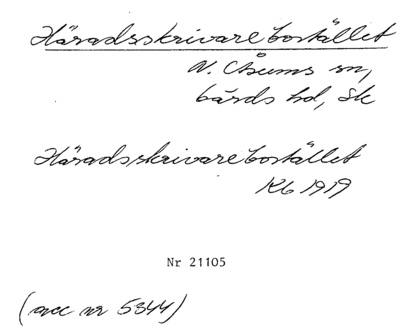 Häradsskrivarebostället
N. Åsums sn,
Gärds hd, Sk
Häradsskrivarebostället
Kb 1919
Nr 21105
(acc nr 5344)